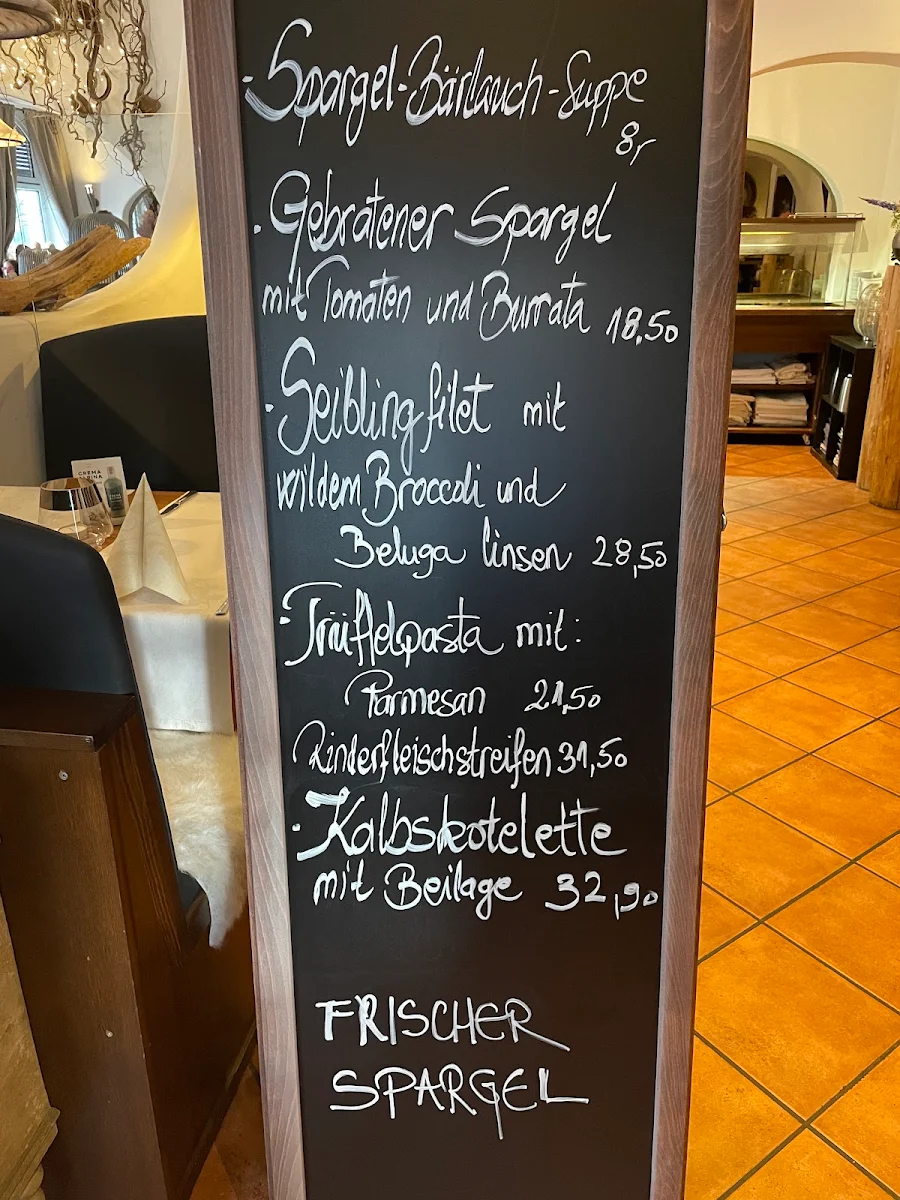 · Spargel-Bärlauch-Suppe
8,-
· Gebratener Spargel
mit Tomaten und Burrata 18,50
· Seiblingfilet mit
wildem Broccoli und
Beluga linsen 28,50
· Trüffelpasta mit:
Parmesan 21,50
Rinderfleischstreifen 31,50
· Kalbskotelette
mit Beilage 32,90
FRISCHER
SPARGEL
CREMA